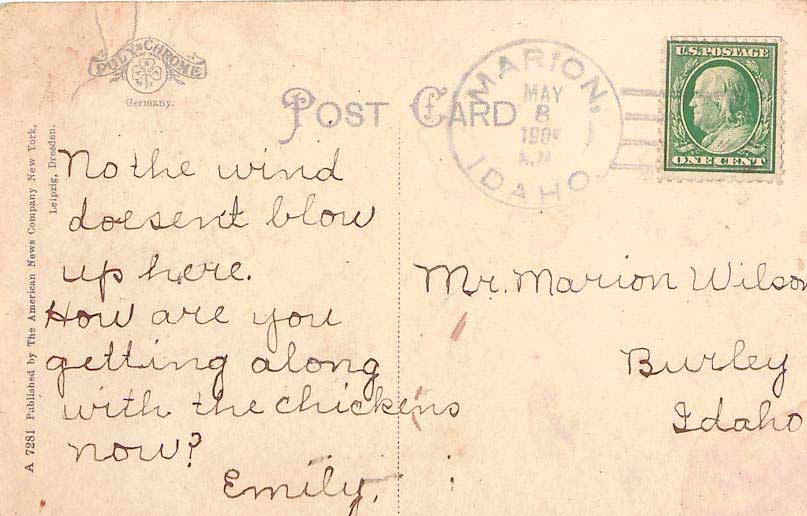 POLY-CHROME
Germany.
POST CARD
MARION, IDAHO.
MAY
8
A.M.
U.S. POSTAGE
ONE CENT
A 7281 Published by The American News Company New York,
Leipzig, Dresden.
No the wind
doesent blow
up here.
How are you
getting along
with the chickens
now?
Emily.
Mr. Marion Wilson
Burley
Idaho